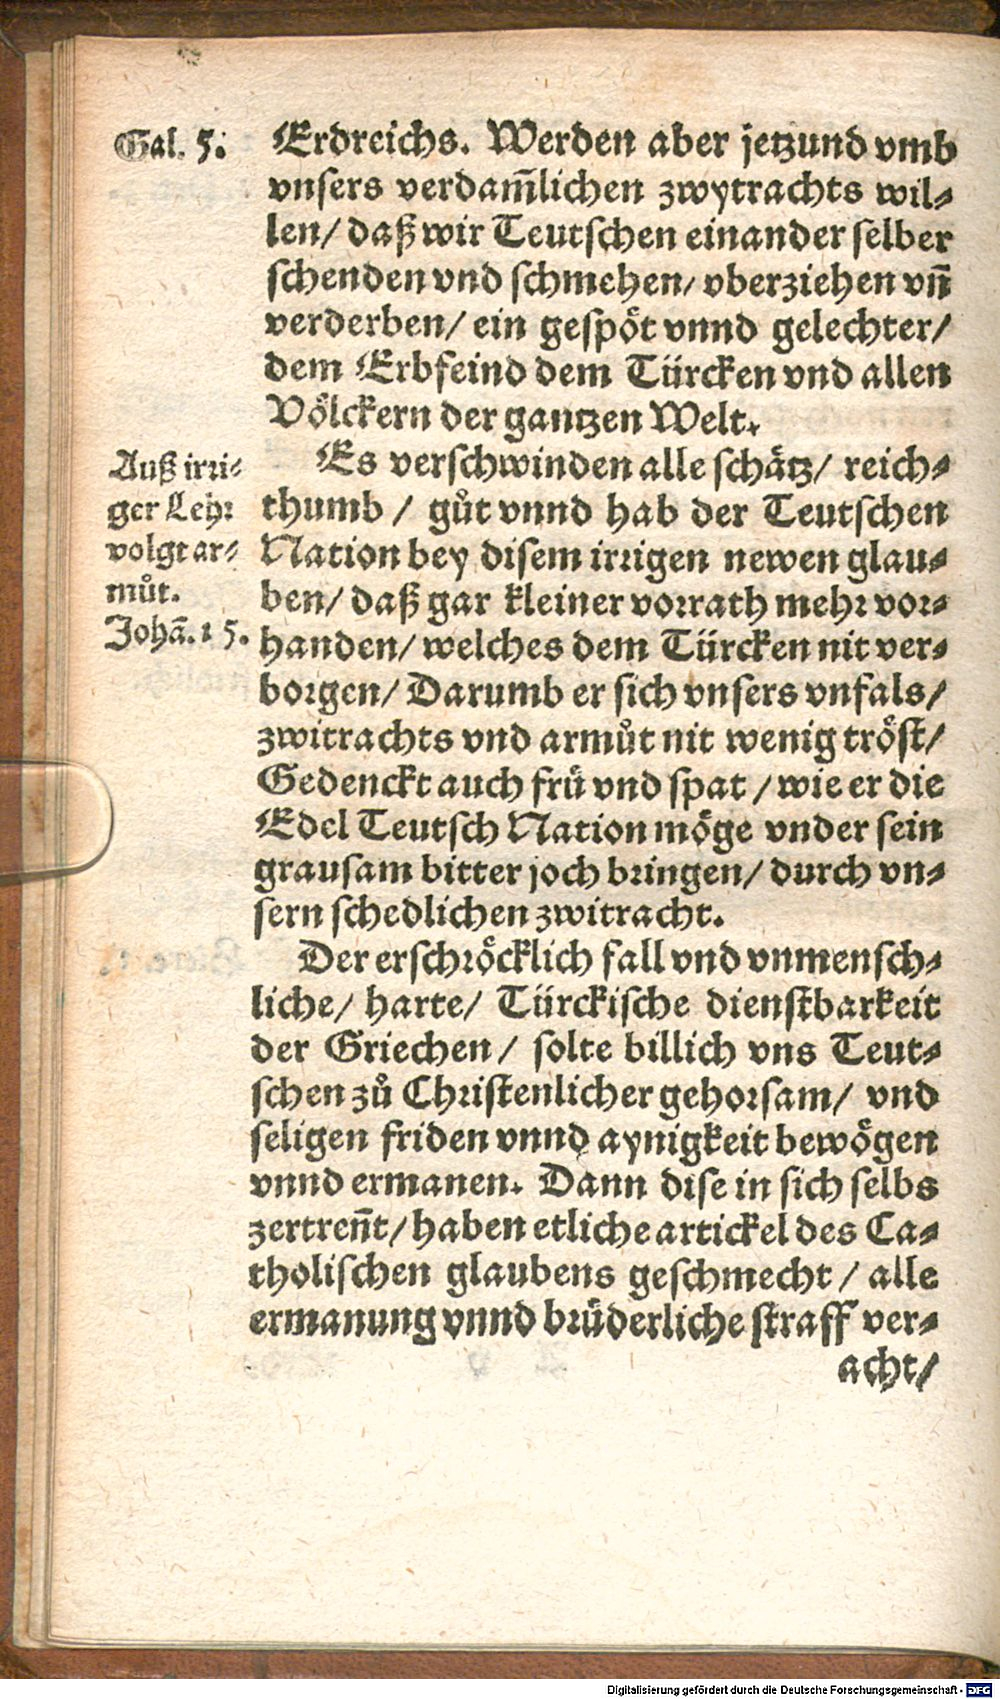 Gal. 5.
Erdreichs. Werden aber jetzund vmb
vnsers verdam̃lichen zwytrachts wil⸗
len/ daß wir Teutschen einander selber
schenden vnd schmehen/ vberziehen vñ
verderben/ ein gespöt vnnd gelechter/
dem Erbfeind dem Türcken vnd allen
Völckern der gantzen Welt.
Auß irri⸗
ger Lehr
volgt ar⸗
můt.
Johã. 15.
Es verschwinden alle schätz/ reich⸗
thumb / gůt vnnd hab der Teutschen
Nation bey disem irrigen newen glau⸗
ben/ daß gar kleiner vorrath mehr vor⸗
handen/ welches dem Türcken nit ver⸗
borgen/ Darumb er sich vnsers vnfals/
zwitrachts vnd armůt nit wenig tröst/
Gedenckt auch frü vnd spat / wie er die
Edel Teutsch Nation möge vnder sein
grausam bitter joch bringen/ durch vn⸗
sern schedlichen zwitracht.
Der erschröcklich fall vnd vnmensch⸗
liche/ harte/ Türckische dienstbarkeit
der Griechen/ solte billich vns Teut⸗
schen zů Christenlicher gehorsam/ vnd
seligen friden vnnd aynigkeit bewögen
vnnd ermanen. Dann dise in sich selbs
zertreñt/ haben etliche artickel des Ca⸗
tholischen glaubens geschmecht / alle
ermanung vnnd brüderliche straff ver⸗
acht/
Digitalisierung gefördert durch die Deutsche Forschungsgemeinschaft - DFG